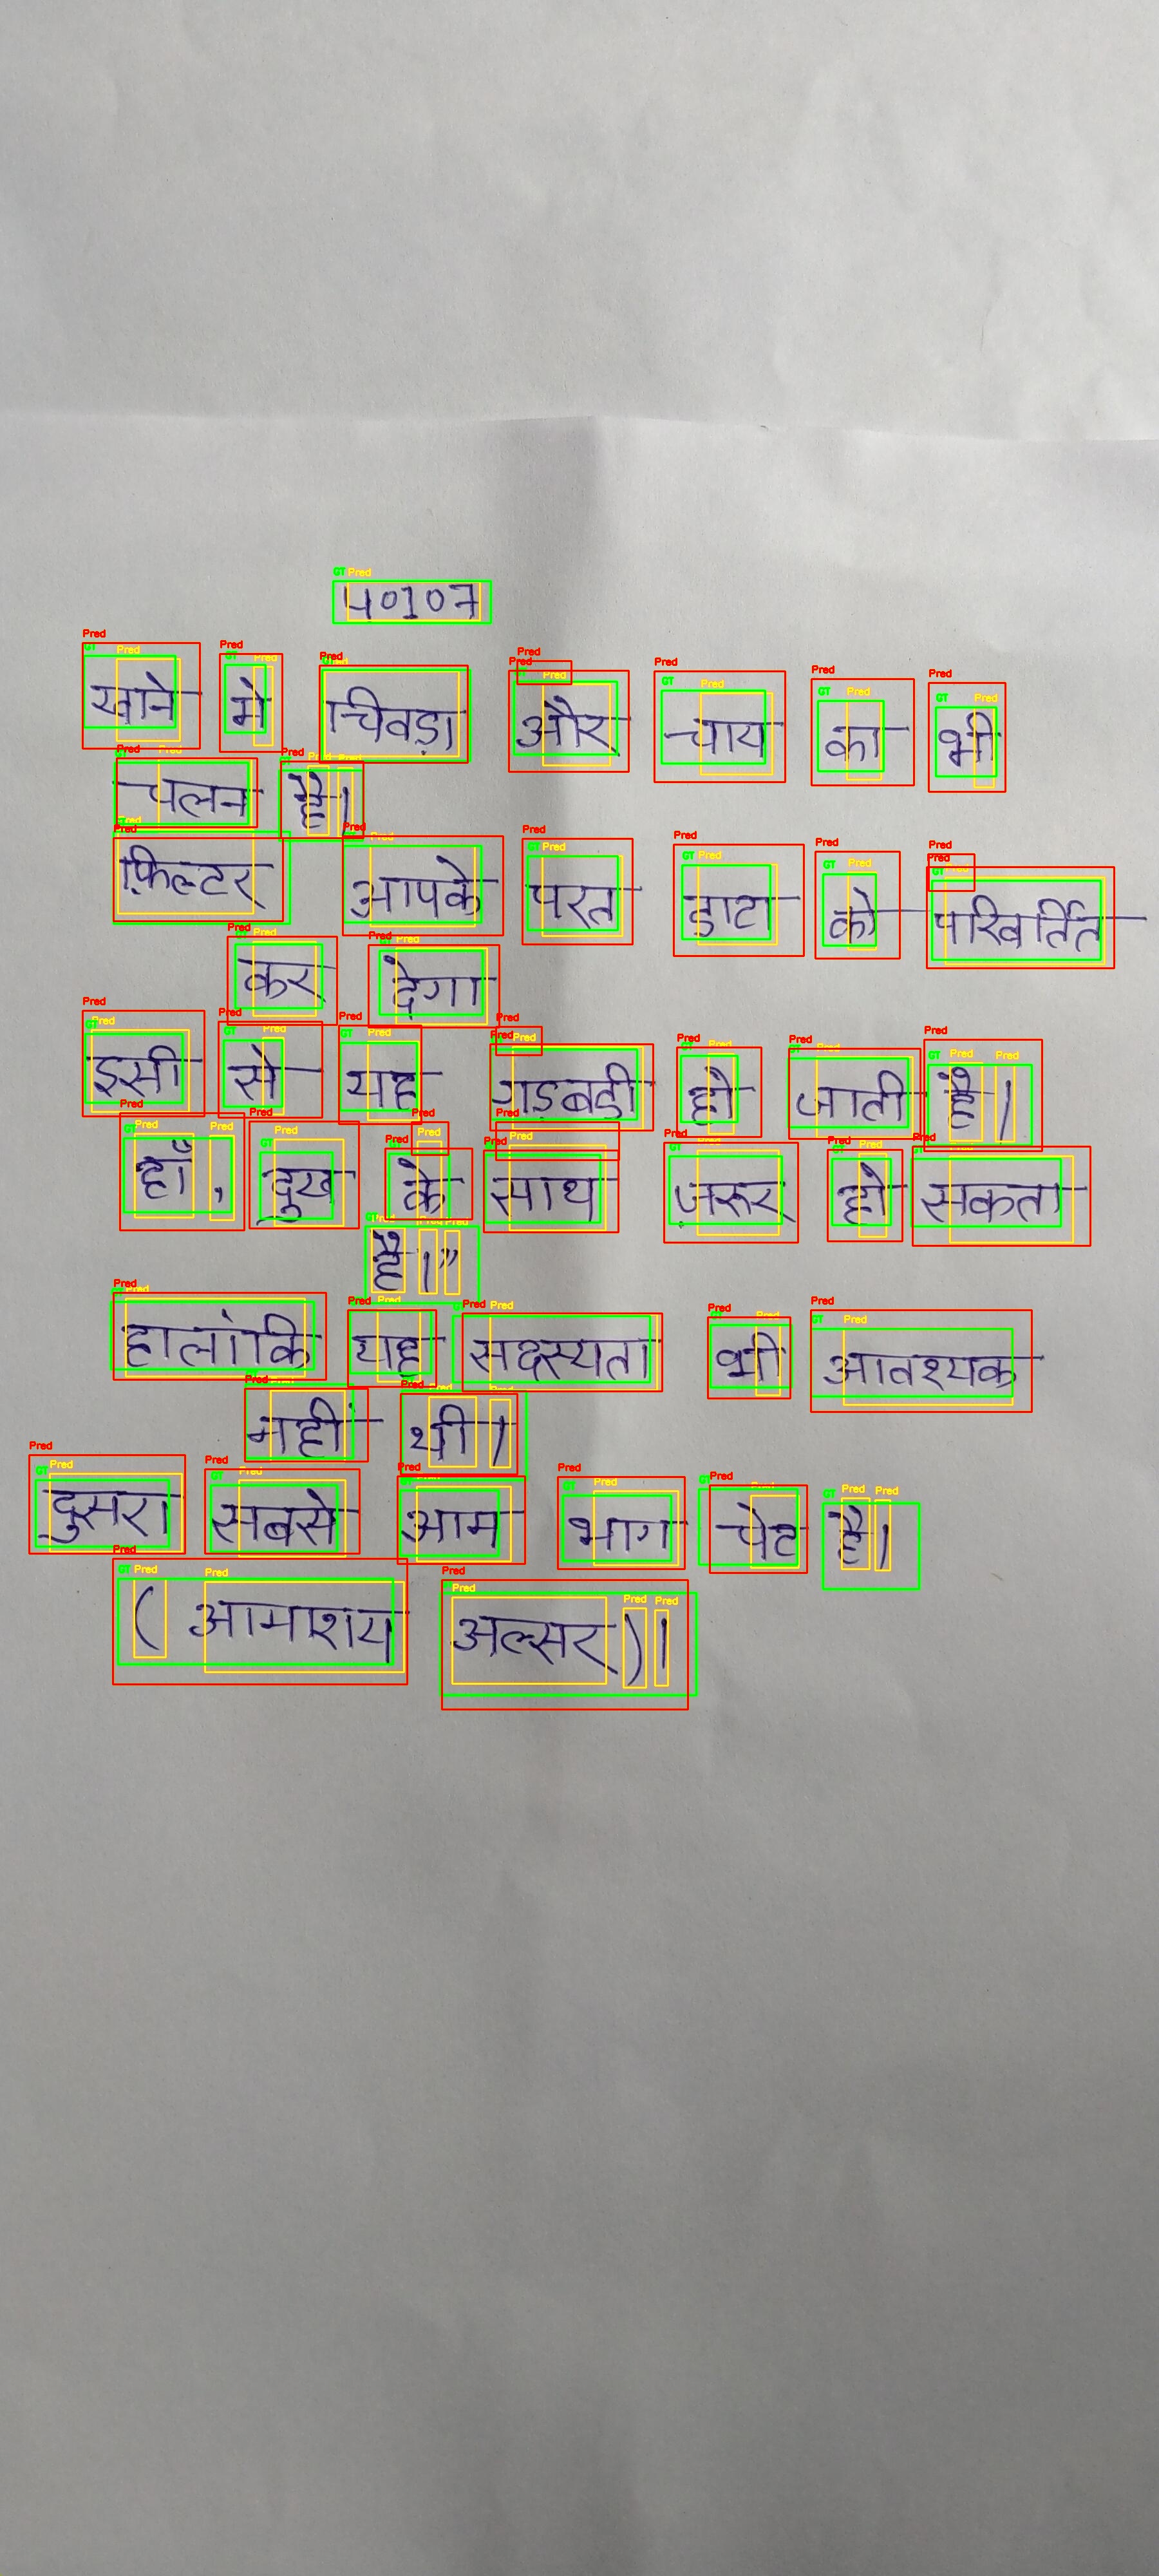 40107
खाने मे चिवड़ा और चाय का भी
चलन है।
फ़िल्टर आपके परत डाटा को परिवर्तित
कर देगा
इसी से यह गड़बड़ी हो जाती है।
हाँ, दुख के साथ ज़रूर हो सकता
है।”
हालांकि यह सदस्यता भी आवश्यक
नहीं थी।
दुसरा सबसे आम भाग पेट है।
( आमाशय अल्सर )।